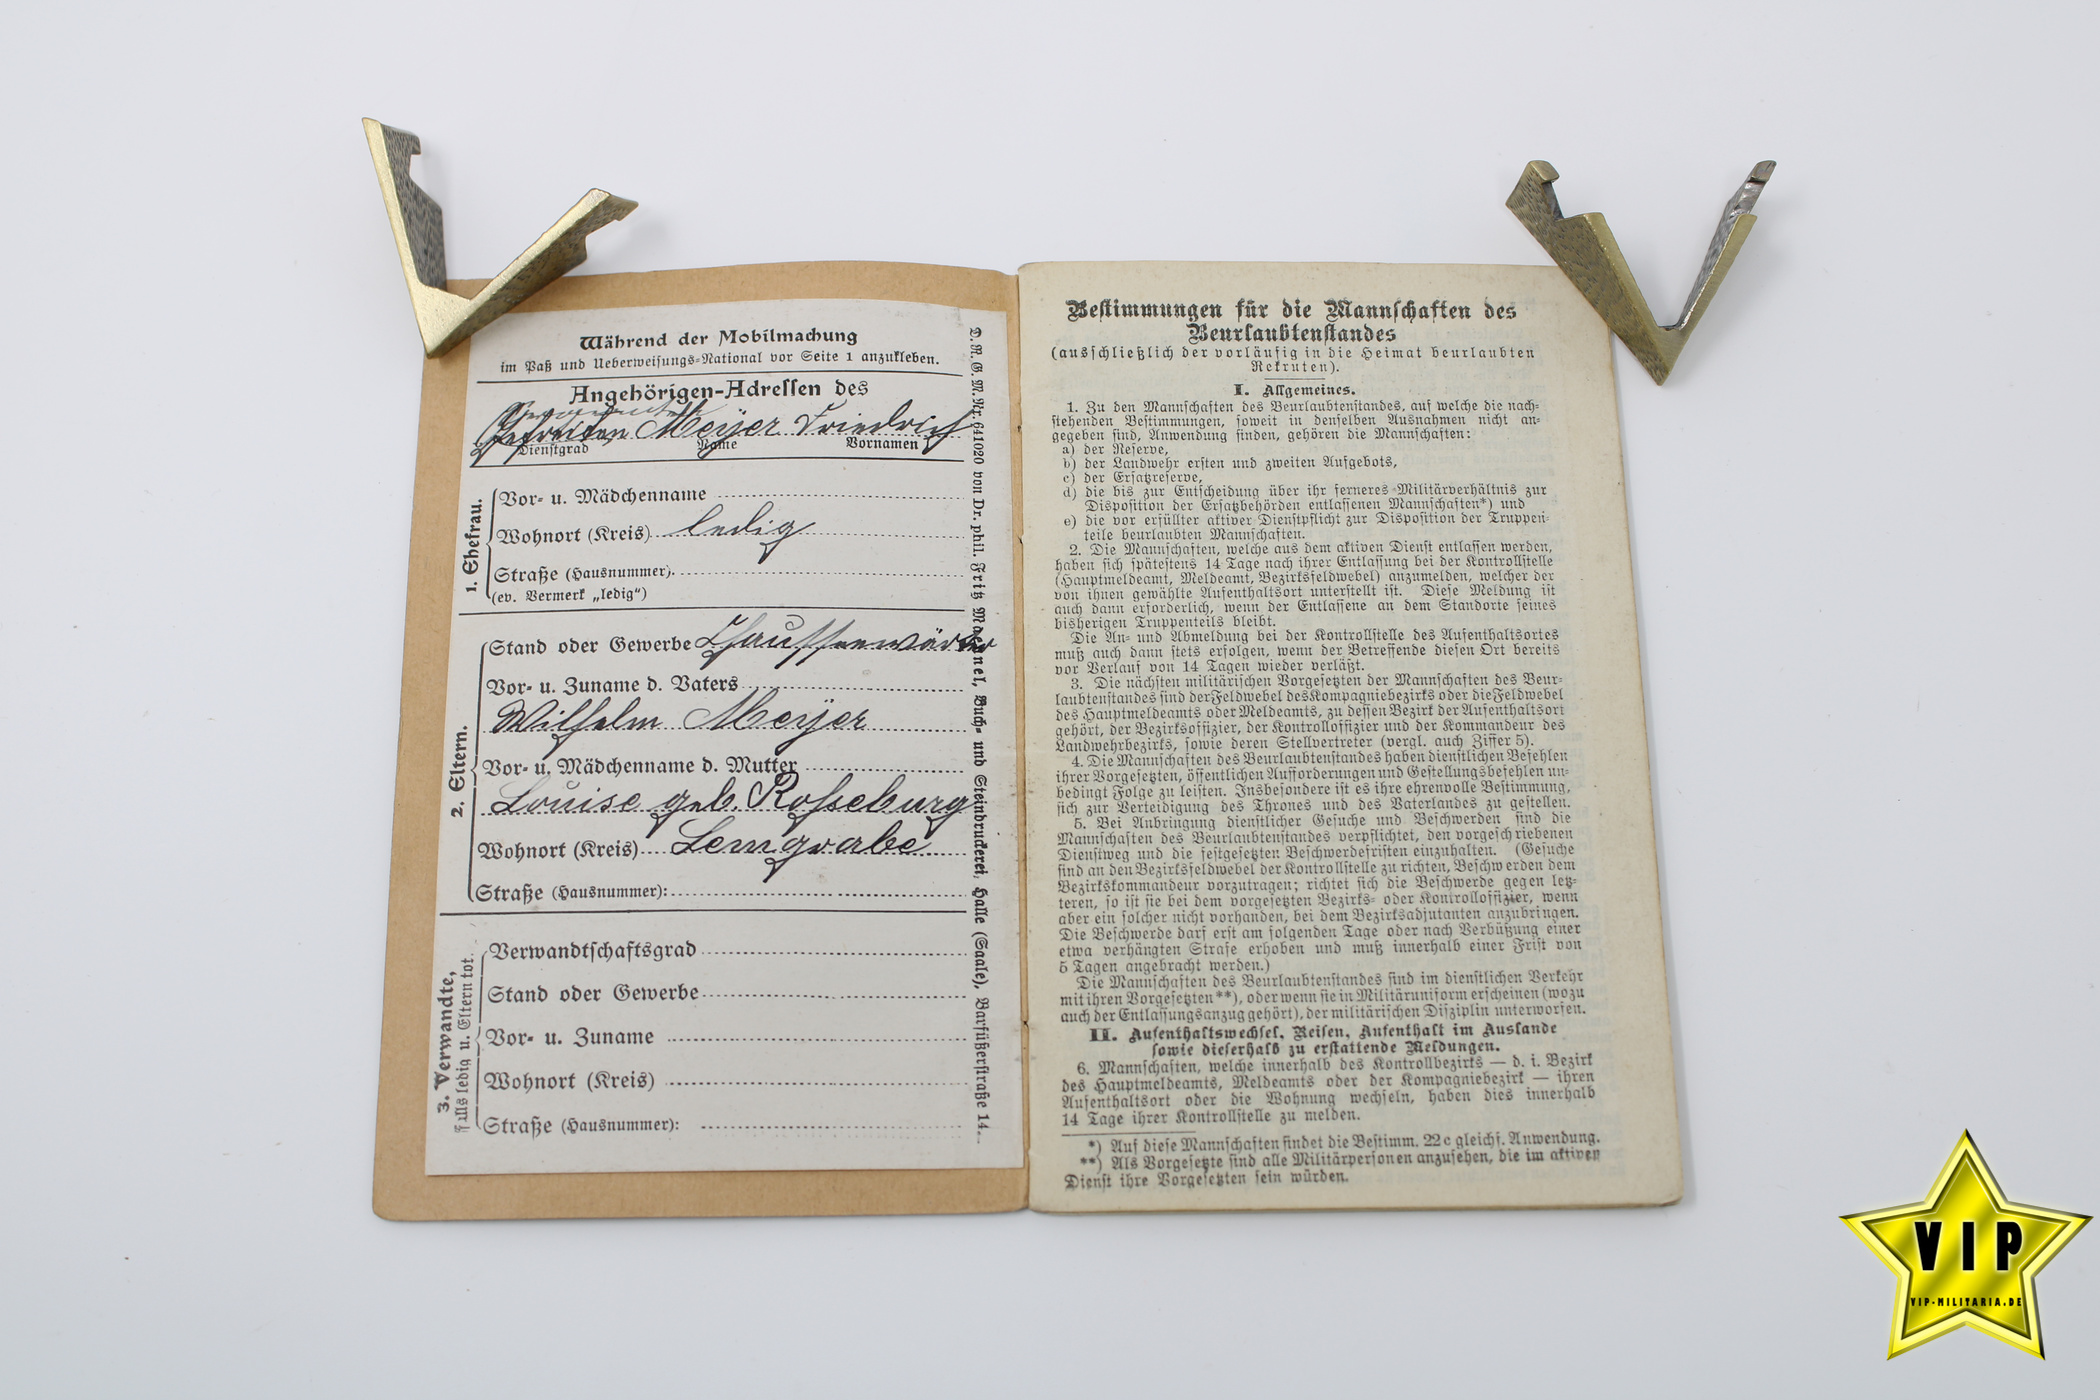 Während der Mobilmachung
im Paß und Ueberweisungs-National vor Seite 1 anzukleben.
Angehörigen-Adressen des
Gefreiten Meyer Friedrich
Dienstgrad Name Vornamen
1. Ehefrau.
Vor- u. Mädchenname
Wohnort (Kreis) ledig
Straße (Hausnummer).
(ev. Vermerk „ledig“)
2. Eltern.
Stand oder Gewerbe Chausseewärter
Vor- u. Zuname d. Vaters
Wilhelm Meyer
Vor- u. Mädchenname d. Mutter
Louise geb. Roseburg
Wohnort (Kreis) Lemgrabe
Straße (Hausnummer):
3. Verwandte,
falls ledig u. Eltern tot.
Verwandtschaftsgrad
Stand oder Gewerbe
Vor- u. Zuname
Wohnort (Kreis)
Straße (Hausnummer):
D. R. G. M. Nr. 641020 von Dr. phil. Fritz Maennel, Buch- und Steindruckerei, Halle (Saale), Barfüßerstraße 14.
Bestimmungen für die Mannschaften des
Beurlaubtenstandes
(ausschließlich der vorläufig in die Heimat beurlaubten
Rekruten).
I. Allgemeines.
1. Zu den Mannschaften des Beurlaubtenstandes, auf welche die nach-
stehenden Bestimmungen, soweit in denselben Ausnahmen nicht an-
gegeben sind, Anwendung finden, gehören die Mannschaften:
a) der Reserve,
b) der Landwehr ersten und zweiten Aufgebots,
c) der Ersatzreserve,
d) die bis zur Entscheidung über ihr ferneres Militärverhältnis zur
Disposition der Ersatzbehörden entlassenen Mannschaften*) und
e) die vor erfüllter aktiver Dienstpflicht zur Disposition der Truppen-
teile beurlaubten Mannschaften.
2. Die Mannschaften, welche aus dem aktiven Dienst entlassen werden,
haben sich spätestens 14 Tage nach ihrer Entlassung bei der Kontrollstelle
(Hauptmeldeamt, Meldeamt, Bezirksfeldwebel) anzumelden, welcher der
von ihnen gewählte Aufenthaltsort unterstellt ist. Diese Meldung ist
auch dann erforderlich, wenn der Entlassene an dem Standorte seines
bisherigen Truppenteils bleibt.
Die An- und Abmeldung bei der Kontrollstelle des Aufenthaltsortes
muß auch dann stets erfolgen, wenn der Betreffende diesen Ort bereits
vor Verlauf von 14 Tagen wieder verläßt.
3. Die nächsten militärischen Vorgesetzten der Mannschaften des Beur-
laubtenstandes sind der Feldwebel des Kompagniebezirks oder die Feldwebel
des Hauptmeldeamts oder Meldeamts, zu dessen Bezirk der Aufenthaltsort
gehört, der Bezirksoffizier, der Kontrolloffizier und der Kommandeur des
Landwehrbezirks, sowie deren Stellvertreter (vergl. auch Ziffer 5).
4. Die Mannschaften des Beurlaubtenstandes haben dienstlichen Befehlen
ihrer Vorgesetzten, öffentlichen Aufforderungen und Gestellungsbefehlen un-
bedingt Folge zu leisten. Insbesondere ist es ihre ehrenvolle Bestimmung,
sich zur Verteidigung des Thrones und des Vaterlandes zu gestellen.
5. Bei Anbringung dienstlicher Gesuche und Beschwerden sind die
Mannschaften des Beurlaubtenstandes verpflichtet, den vorgeschriebenen
Dienstweg und die festgesetzten Beschwerdefristen einzuhalten. (Gesuche
sind an den Bezirksfeldwebel der Kontrollstelle zu richten, Beschwerden dem
Bezirkskommandeur vorzutragen; richtet sich die Beschwerde gegen letz-
teren, so ist sie bei dem vorgesetzten Bezirks- oder Kontrolloffizier, wenn
aber ein solcher nicht vorhanden, bei dem Bezirksadjutanten anzubringen.
Die Beschwerde darf erst am folgenden Tage oder nach Verbüßung einer
etwa verhängten Strafe erhoben und muß innerhalb einer Frist von
5 Tagen angebracht werden.)
Die Mannschaften des Beurlaubtenstandes sind im dienstlichen Verkehr
mit ihren Vorgesetzten**), oder wenn sie in Militäruniform erscheinen (wozu
auch der Entlassungsanzug gehört), der militärischen Disziplin unterworfen.
II. Aufenthaltswechsel, Reisen, Aufenthalt im Auslande
sowie dieserhalb zu erstattende Meldungen.
6. Mannschaften, welche innerhalb des Kontrollbezirks — d. i. Bezirk
des Hauptmeldeamts, Meldeamts oder der Kompagniebezirk — ihren
Aufenthaltsort oder die Wohnung wechseln, haben dies innerhalb
14 Tage ihrer Kontrollstelle zu melden.
*) Auf diese Mannschaften findet die Bestimm. 22 c gleichf. Anwendung.
**) Als Vorgesetzte sind alle Militärpersonen anzusehen, die im aktiven
Dienst ihre Vorgesetzten sein würden.
VIP
VIP-MILITARIA.DE